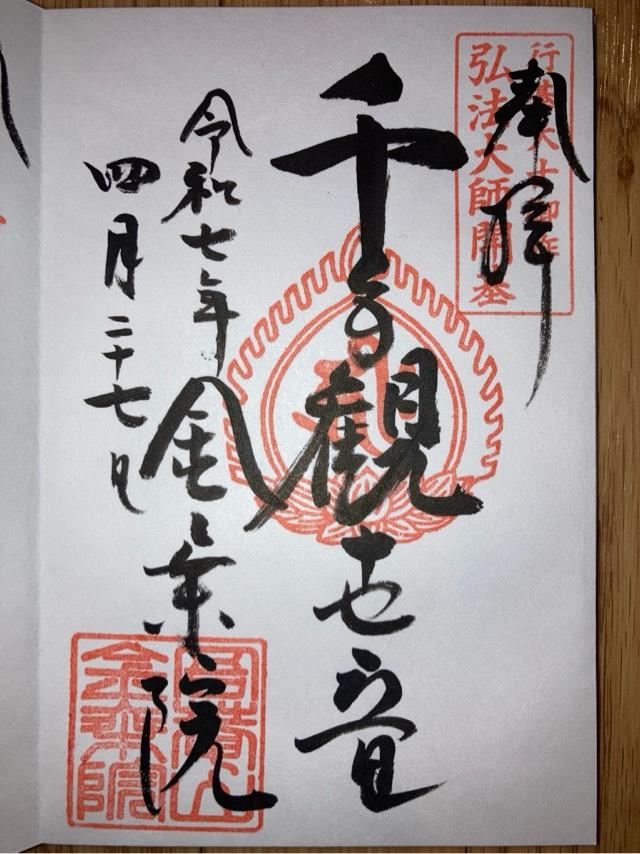 奉拝
行基大士御作
弘法大師開基
千手觀世音
令和七年
四月二十七日
金乗院
金乗院